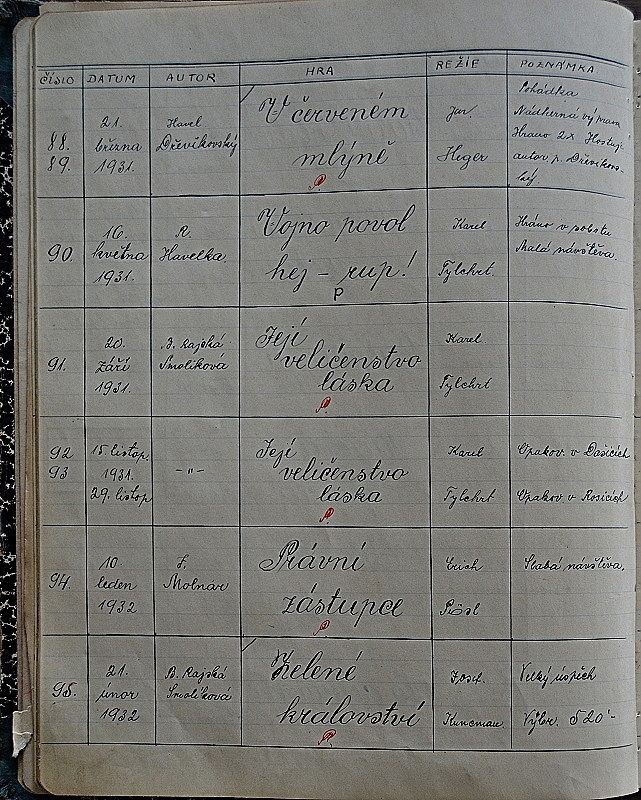 ČÍSLO DATUM AUTOR HRA REŽIE POZNÁMKA
88.
89.
21.
března
1931.
Havel
Dřevíkovský
V červeném
mlýně
P.
Jar.
Heger
Pohádka
Nádherná výprava
Hráno 2x Hostuje
autor p. Dřevíkov-
ský.
90.
16.
května
1931.
R.
Havelka.
Vojno povol
hej – rup!
P
Karel
Tylchrt.
Hráno v sobotu
Malá návštěva.
91.
20.
září
1931.
B. Rajská
Smolíková
Její
veličenstvo
láska
P.
Karel
Tylchrt
92
93
15. listop.
1931.
29. listop.
–„–
Její
veličenstvo
láska
P.
Karel
Tylchrt
Opakov. v Dašicích
Opakov v Rosicích
94.
10.
leden
1932
F.
Molnar
Právní
zástupce
P.
Erich
Rösl
Slabá návštěva.
95.
21.
únor
1932
B. Rajská
Smolíková
Zelené
království
P.
Josef
Kuncman
Velký úspěch
Výbr. 520'–